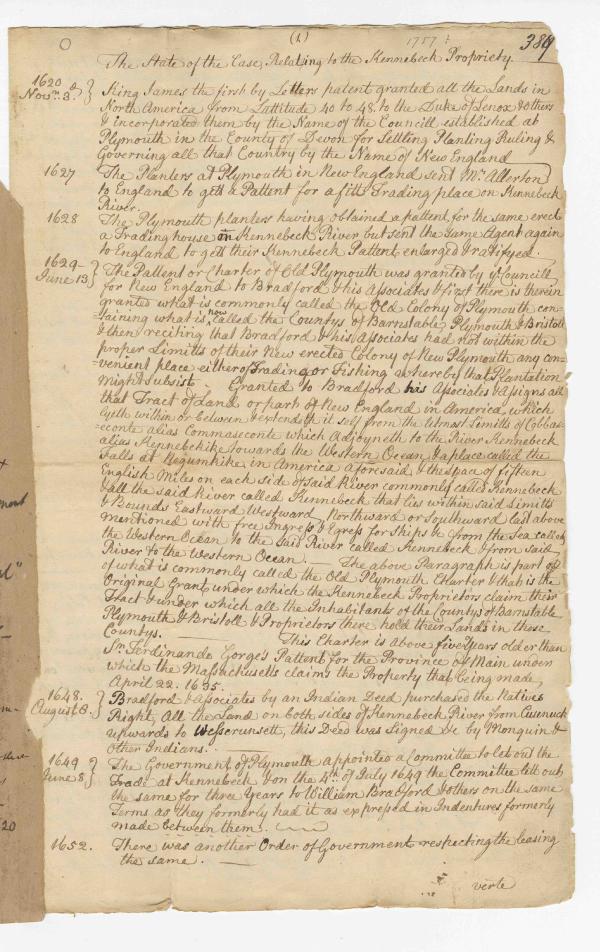 (1) 1757 389
The State of the Case, Relating to the Kennebeck Propriety
1620 Novm. 3d. } King James the first by Letters patent granted all the Lands in
North America from Lattitude 40 to 48 to the Duke of Lenox & others
& incorporated them by the Name of the Councill established at
Plymouth in the County of Devon for Settling Planting Ruling &
Governing all that Country by the Name of New England
1627 The Planters at Plymouth in New England sent Mr. Allerton
to England to gett a Pattent for a fitt Trading place on Kennebeck
River.
1628 The Plymouth planters having obtained a patent for the same erect
a Trading house on Kennebeck River but sent the same Agent again
to England to gett their Kennebeck Pattent enlarged & ratifyed.
1629 June 13 } The Pattent or Charter of Old Plymouth was granted by ye Councill
for New England to Bradford & his Associates & first there is therein
granted what is commonly called the Old Colony of Plymouth con-
=taining what is now called the Countys of Barnstable, Plymouth & Bristoll
& then reciting that Bradford & his Associates had not within the
proper Limitts of their New erected Colony of New Plymouth any con=
=venient place either of Trading or Fishing whereby that Plantation
Might subsist. Granted to Bradford his Associates & Assigns all
that Tract of Land or part of New England in America, which
lyeth within or between & extendeth it self from the utmost Limitts of Cobbas-
=seconte alias Commaseconte which adjoyneth to the River Kennebeck
alias Kennebekike towards the Western Ocean & a place called the
Falls at Negumkike in America aforesaid & the space of fifteen
English Miles on each side of said River commonly called Kennebeck
& all the said River called Kennebeck that lies within said Limitts
& Bounds Eastward Westward Northward or Southward last above
Mentioned with free Ingress & Egress for Ships &c from the Sea called
the Western Ocean to the said River called Kennebeck & from said
River to the Western Ocean. — The above Paragraph is part of
of what is commonly called the Old Plymouth Charter & that is the
Original Grant under which the Kennebeck Proprietors claim their
Tract & under which all the Inhabitants of the Countys of Barnstable
Plymouth & Bristoll & Proprietors there hold their Lands in these
Countys. — This Charter is above five Years older than
Sr. Ferdinando Gorges's Patent for the Province of Main under
which the Massachusetts claims the Property that being made
April 22. 1635.
1648. August 8. } Bradford & Associates by an Indian Deed purchased the Natives
Right, All the Land on both sides of Kennebeck River from Cusenuck
upwards to Wesserunsett, this Deed was Signed &c by Monquin &
Other Indians. —
1649 June 8 } The Government of Plymouth appointed a Committee to let out the
Trade at Kennebeck & on the 4th. of July 1649 the Committee lett out
the same for three Years to William Bradford & others on the same
Terms as they formerly had it as expressed in Indentures formerly
made between them.
1652. There was another Order of Government respecting the leasing
the same. —
verte
20